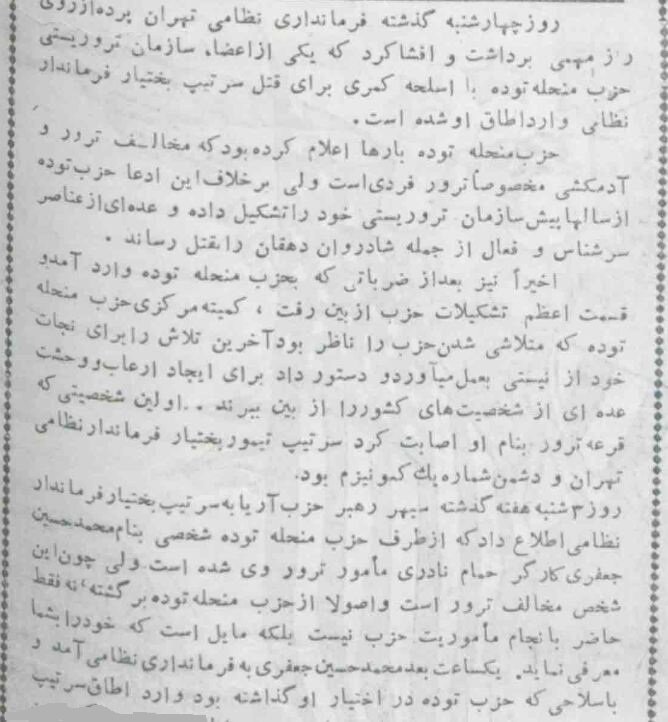 روز چهارشنبه گذشته فرمانداری نظامی تهران پرده از روی
راز مهمی برداشت و افشا کرد که یکی از اعضاء سازمان تروریستی
حزب منحله توده با اسلحه کمری برای قتل سرتیپ بختیار فرماندار
نظامی وارد اطاق او شده است.
حزب منحله توده بارها اعلام کرده بود که مخالف ترور و
آدمکشی مخصوصاً ترور فردی است ولی برخلاف این ادعا حزب توده
از سالها پیش سازمان تروریستی خود را تشکیل داده و عده‌ای از عناصر
سرشناس و فعال از جمله شادروان دهقان را بقتل رساند .
اخیراً نیز بعد از ضرباتی که بحزب منحله توده وارد آمد و
قسمت اعظم تشکیلات حزب از بین رفت ، کمیته مرکزی حزب منحله
توده که متلاشی شدن حزب را ناظر بود آخرین تلاش را برای نجات
خود از نیستی بعمل می‌آورد و دستور داد برای ایجاد ارعاب و وحشت
عده ای از شخصیت‌های کشور را از بین ببرند . . اولین شخصیتی که
قرعه ترور بنام او اصابت کرد سرتیپ تیمور بختیار فرماندار نظامی
تهران و دشمن شماره یك کمونیزم بود.
روز ۳ شنبه هفته گذشته سپهر رهبر حزب آریا به سرتیپ بختیار فرماندار
نظامی اطلاع داد که از طرف حزب منحله توده شخصی بنام محمدحسین
جعفری کارگر حمام نادری مأمور ترور وی شده است ولی چون این
شخص مخالف ترور است و اصولا از حزب منحله توده برگشته، نه فقط
حاضر بانجام مأموریت حزب نیست بلکه مایل است که خود را بشما
معرفی نماید. یکساعت بعد محمدحسین جعفری به فرمانداری نظامی آمد و
با سلاحی که حزب توده در اختیار او گذاشته بود وارد اطاق سرتیپ